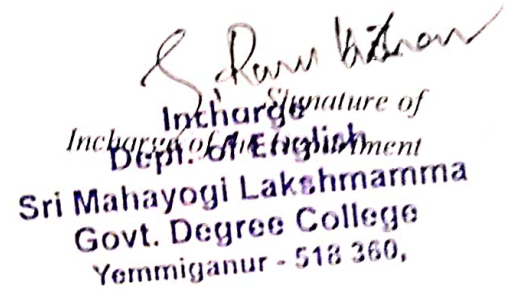 Signature of
Incharge
Incharge of the Department
Dept. of English
Sri Mahayogi Lakshmamma
Govt. Degree College
Yemmiganur - 518 360,